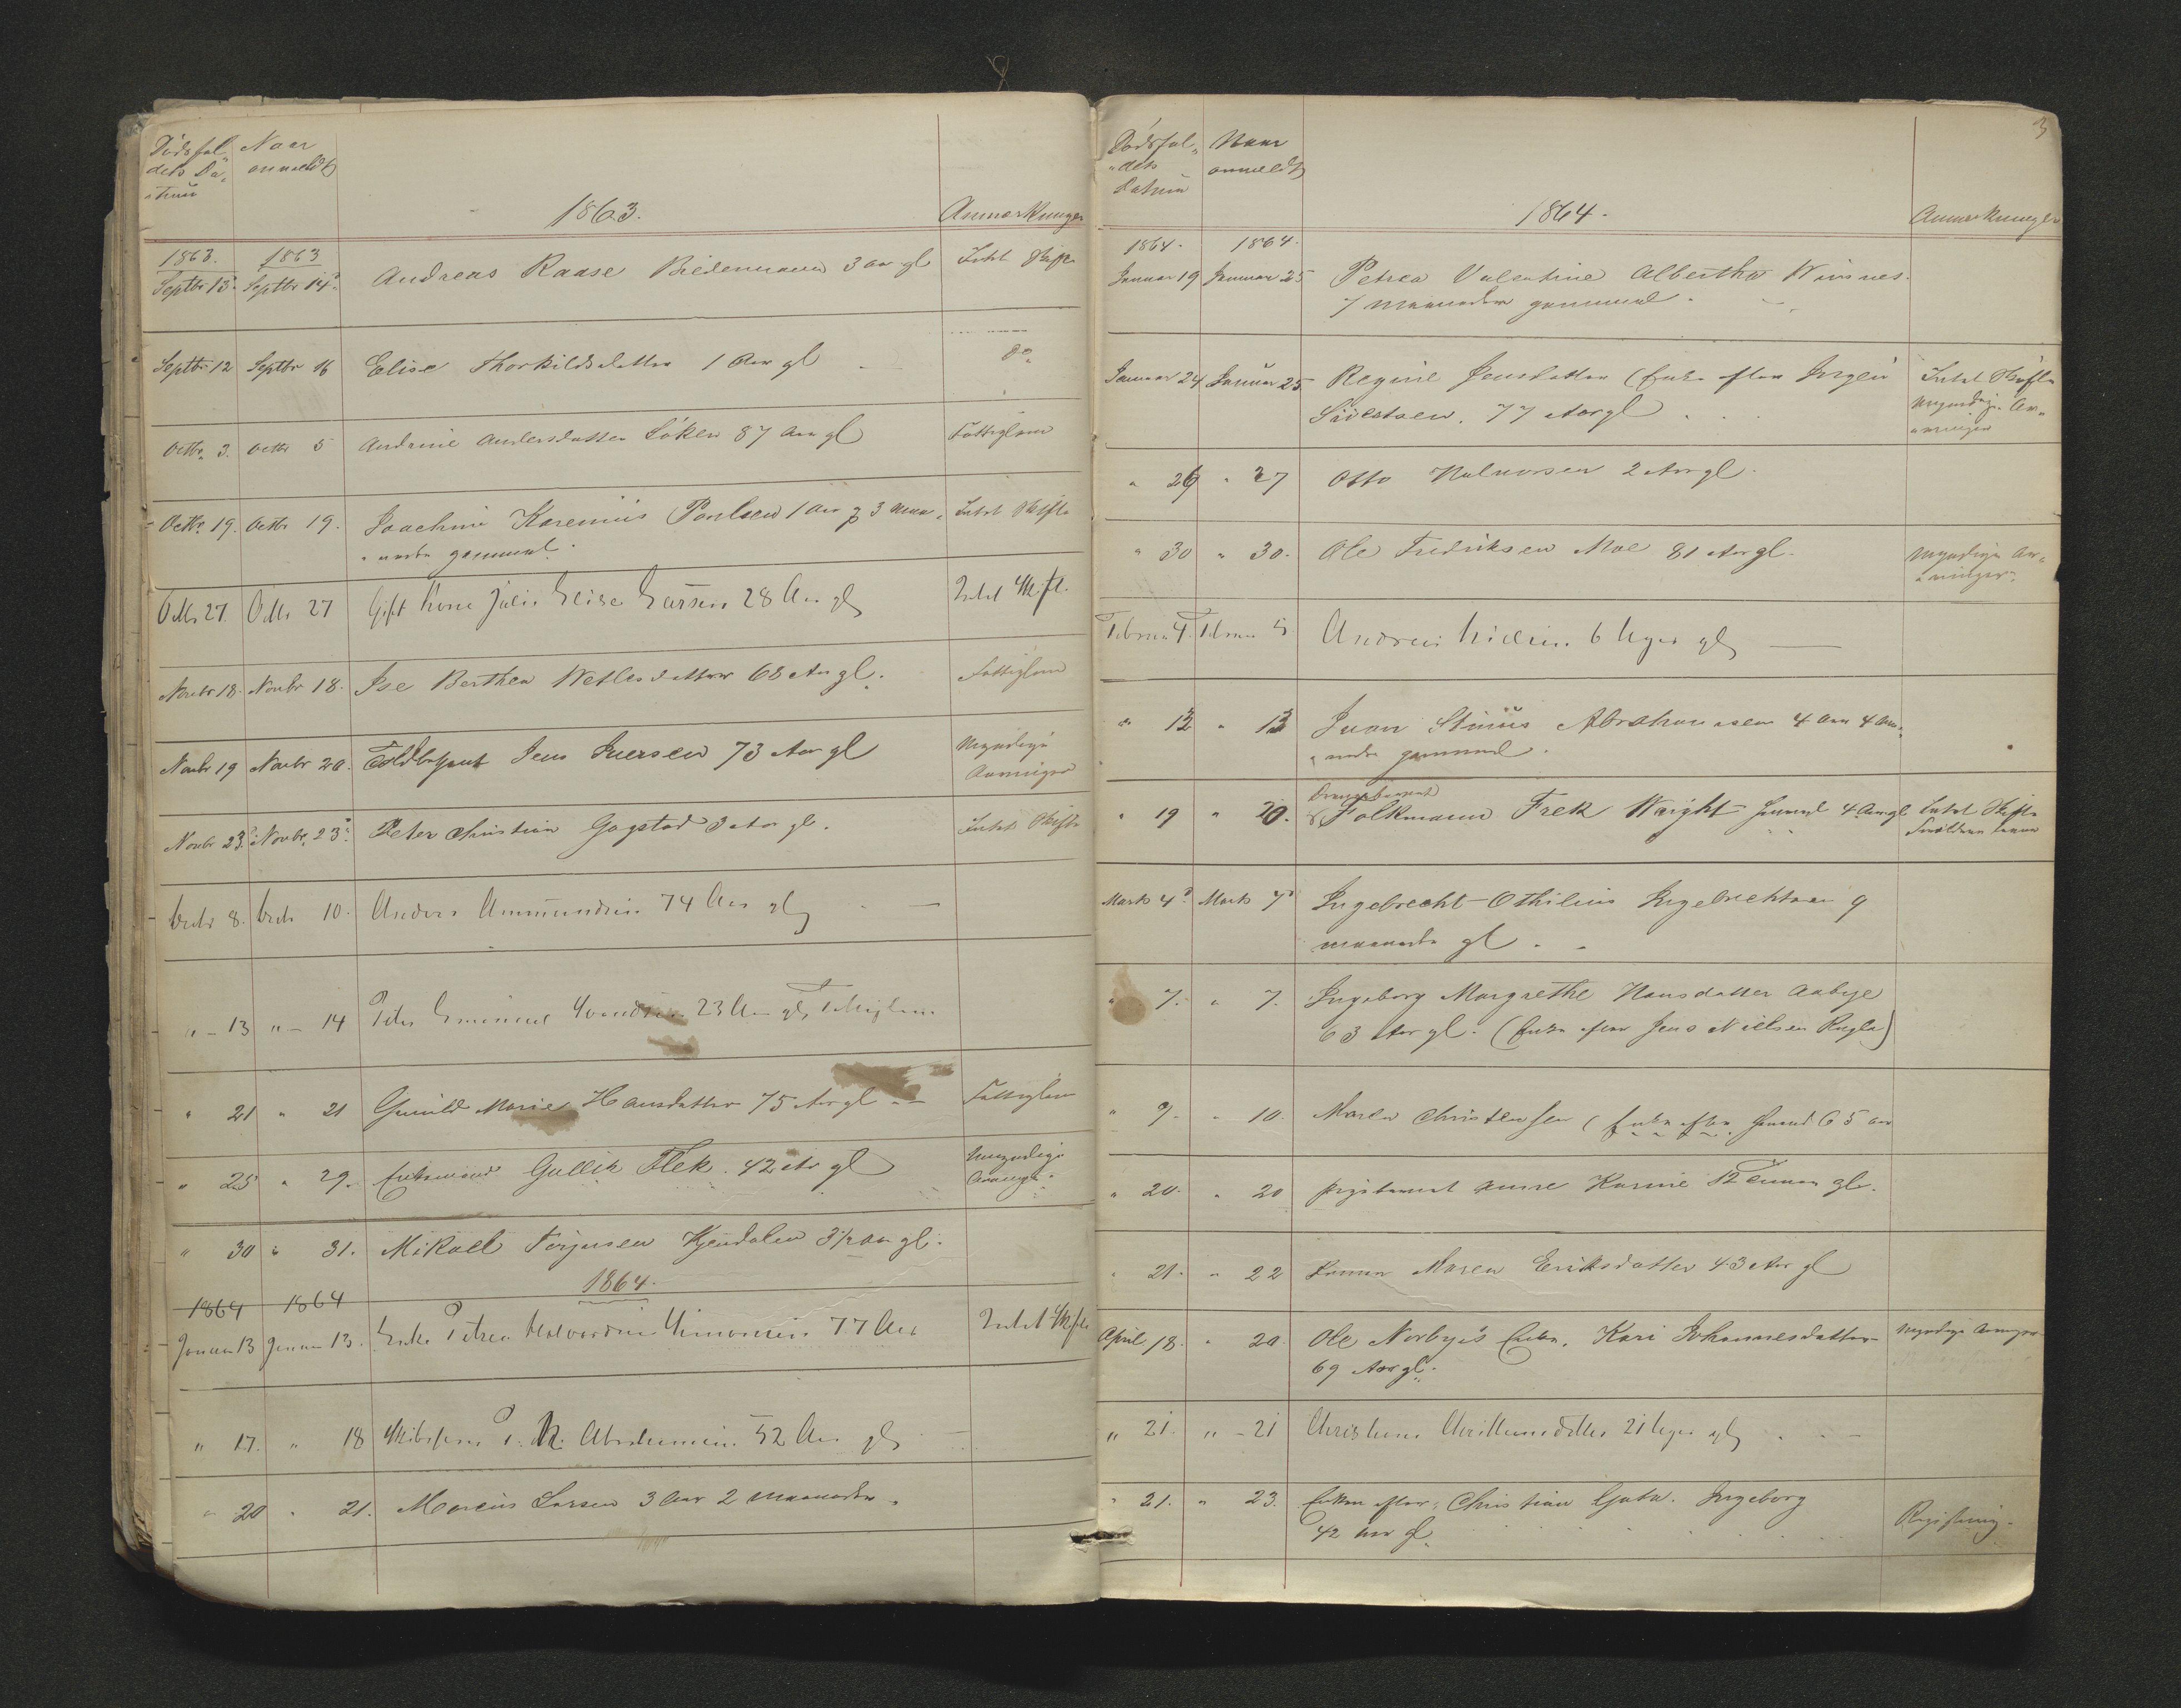 Dödsfal„ Naar
dets Da„ anmeldt
„tum
1863. Anmærkninger
1863. 1863
Septbr 13d Septbr 14d Andreas Raase Biedermann 3 aar gl Intet Skifte
Septbr 12 Septbr 16 Elise Thorkildsdatter 1 Aar gl do
Octbr 3. Octbr 5 Andrine Andersdatter 87 Aar gl Fattiglem
Octbr 19. Octbr 19. Joachim Karenius Paulsen 1 Aar 3 Maa„ Intet Skifte
„neder gammel
Octbr 27. Octbr 27 Gift Kone Julie Elise Larsen 28 Aar gl Intet Skifte
Novbr 18. Novbr 18. Ise Berthea Wetlesdatter 68 Aar gl. Fattiglem
Novbr 19 Novbr 20. Toldbetjent Jens Iversen 73 Aar gl Myndige
Arvinger
Novbr 23d Novbr 23d Peter Christian Gogstad 3 Aar gl. Intet Skifte
Decbr 8. Decbr 10. Anders Ammundsen 74 Aar gl
„ - 13 „ - 14 Peter Emanuel 23 Aar gl, Fattiglem
„ 21 „ 21 Gunild Marie Hansdatter 75 Aar gl Fattiglem
„ 25 „ 29. Enkemand Gullik Flek. 42 Aar gl Umyndige
Arvinger
„ 30 „ 31. Mikael Torjusen Kjendalen 3 1/2 Aar gl.
1864.
1864 1864
Januar 13 Januar 13. Enke Petrea Halvordine Simonsen 77 Aar Intet Skifte
„ 17. „ 18 Skibsfører Abrahamsen 52 Aar gl
„ 20 „ 21. Marcus Larsen 3 Aar 2 Maaneder.
3
Dödsfal„ Naar
„dets anmeldt
Datum
1864. Anmærkninger
1864. 1864.
Januar 19 Januar 25 Petrea Valentine Albertha Winsnes.
7 Maaneder gammel.
Januar 24 Januar 25 Regine Jensdatter (Enke efter Jørgen Intet Skifte
77 Aar gl Myndige Ar„
„vinger
„ 26 „ 27 Otto Halvorsen 2 Aar gl.
„ 30 „ 30. Ole Fredriksen Moe 81 Aar gl. Myndige Ar„
„vinger.
Februar 4. Februar 5. Andreas Nielsen 6 Uger gl
„ 12 „ 13 Ivar Abrahamsen 4 Aar 4 Maa„
„neder gammel.
„ 19 „ 20. Folkmann Frek Wright 4 Aar gl Intet Skifte
Marts 4d Marts 7d Ingebrecht Othilius Ingebrechtsen 9
maaneder gl.
„ 7. „ 7. Ingeborg Margrethe Hansdatter Aabye
63 Aar gl. (Enke efter Jens Nielsen Rugla)
„ 9. „ 10. Maren Christensen (Enke efter 65 aar
„ 20. „ 20 Anne Karine 12 gl.
„ 21. „ 22 Maren Eriksdatter 43 Aar gl
April 18. „ 20. Ole Norbyes Enke, Kari Johannesdatter Myndige Arvinger
69 Aar gl.
„ 21. „ - 21 21 Uger gl
„ 21. „ 23. Enken efter Christian Ingeborg
42 Aar gl. Registrering.